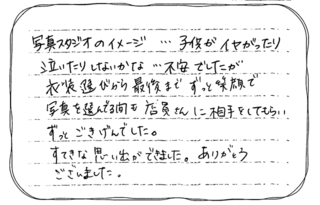 写真スタジオのイメージ … 子供がイヤがったり
泣いたりしないかな … 不安でしたが
衣装選びから最後まで ずっと笑顔で
写真を選んでる間も 店員さんに相手をしてもらい
ずっと ごきげんでした。
すてきな思い出ができました。ありがとう
ございました。